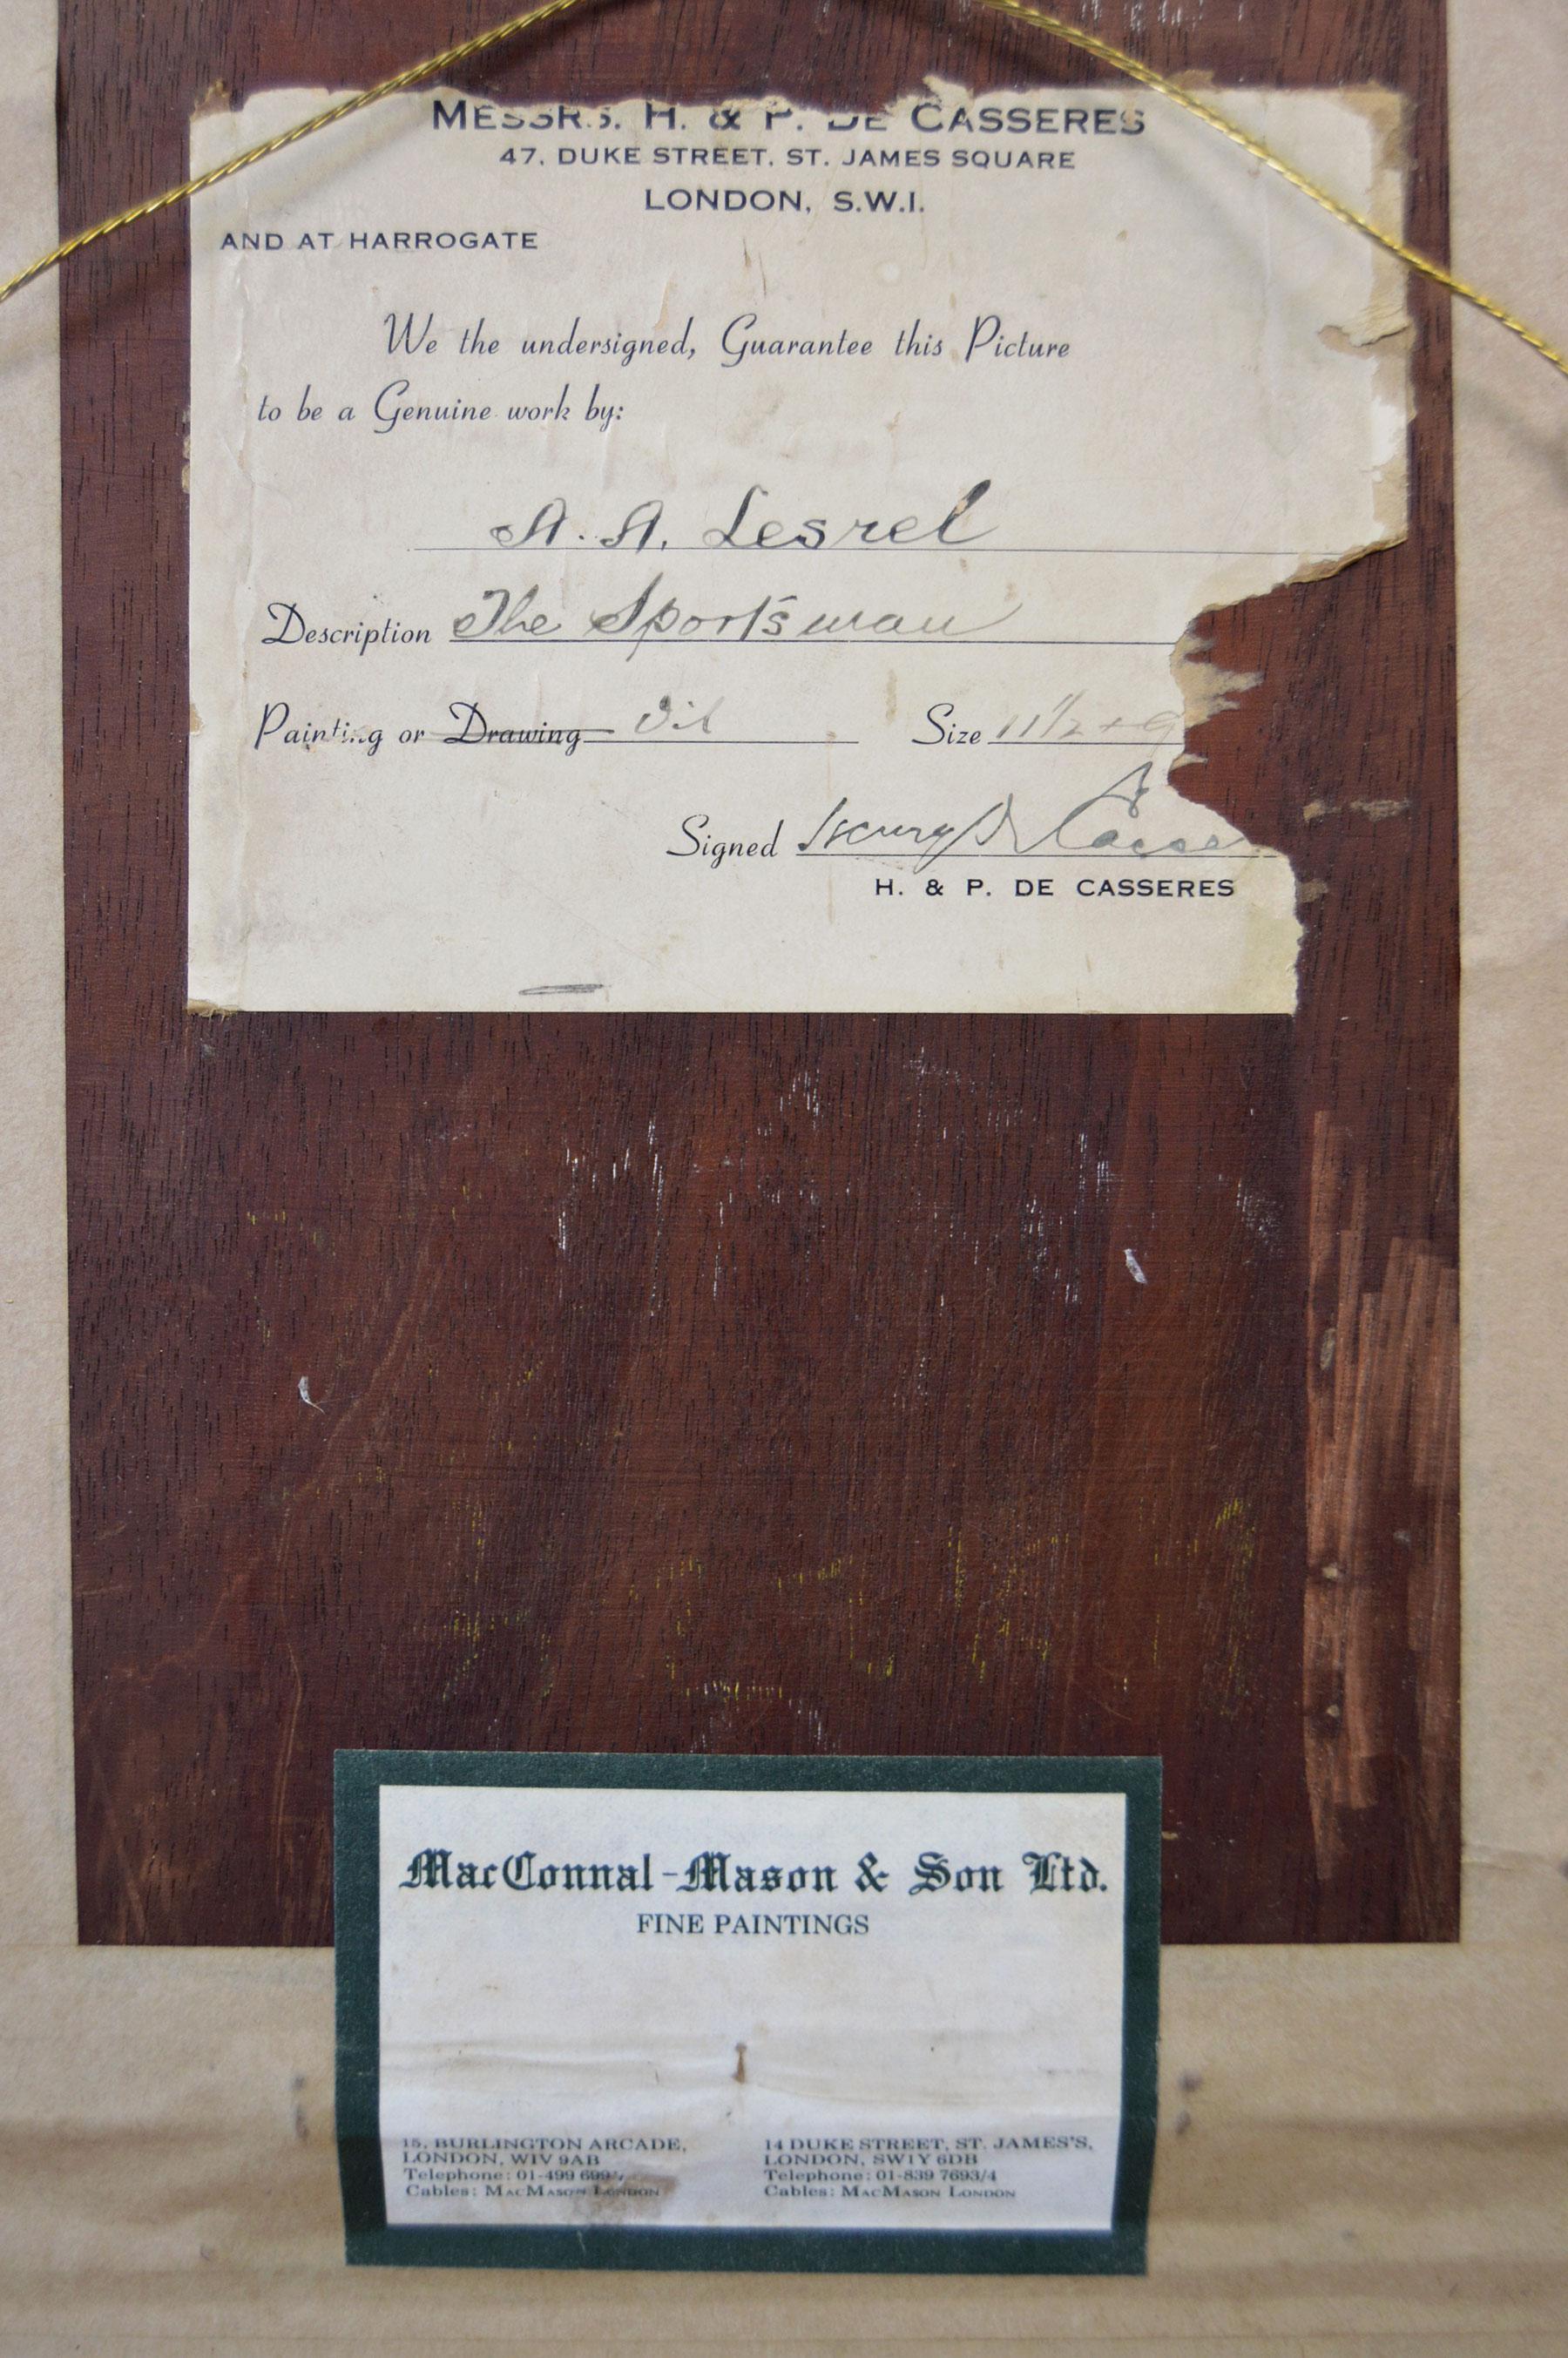 MESSRS. H. & P. DE CASSERES
47, DUKE STREET, ST. JAMES SQUARE
LONDON, S.W.1.
AND AT HARROGATE
We the undersigned, Guarantee this Picture
to be a Genuine work by:
A. A. Lesrel
Description The Sportsman
Painting or Drawing Oil Size 11½ + 9
Signed Henry De Casse
H. & P. DE CASSERES
MacConnal-Mason & Son Ltd.
FINE PAINTINGS
15, BURLINGTON ARCADE,
LONDON, W1V 9AB
Telephone: 01-499
Cables: MACMASON LONDON
14 DUKE STREET, ST. JAMES'S,
LONDON, SW1Y 6DB
Telephone: 01-839 7693/4
Cables: MACMASON LONDON